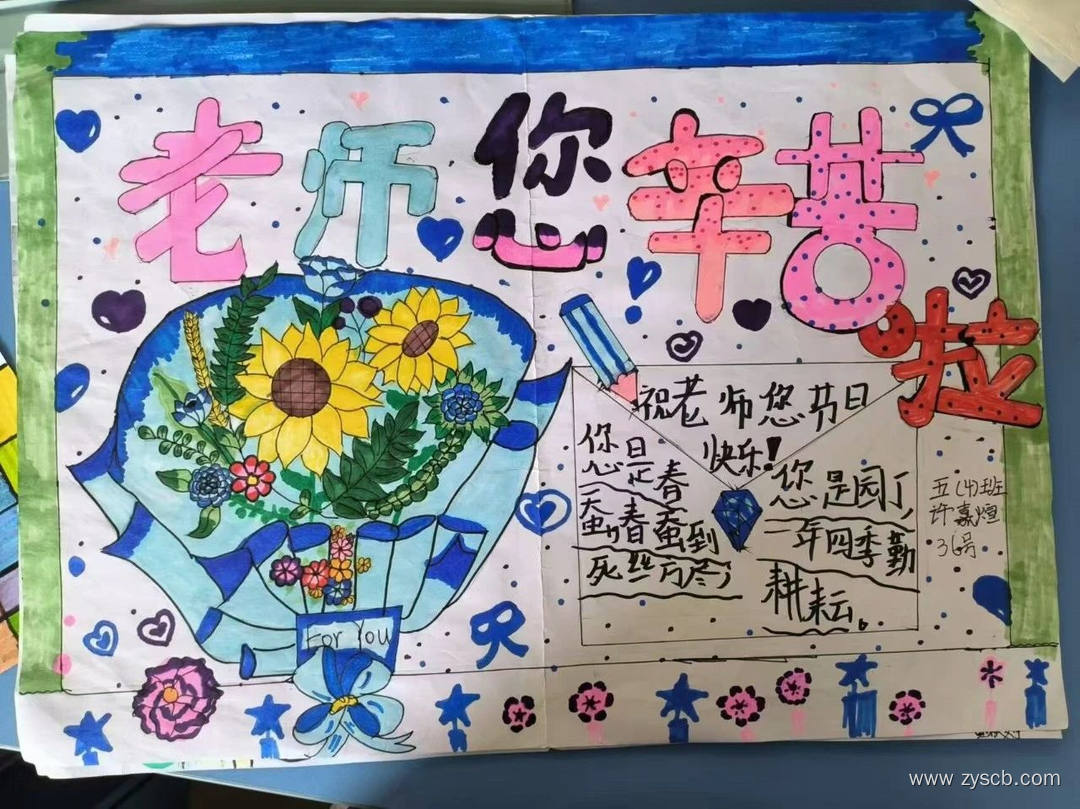 老师您辛苦啦
祝老师您节日
快乐!
您是春
蚕,春蚕到
死丝方尽,
您是园丁,
一年四季勤
耕耘。
五(4)班
许嘉煊
36号
For You
www.zyscb.com